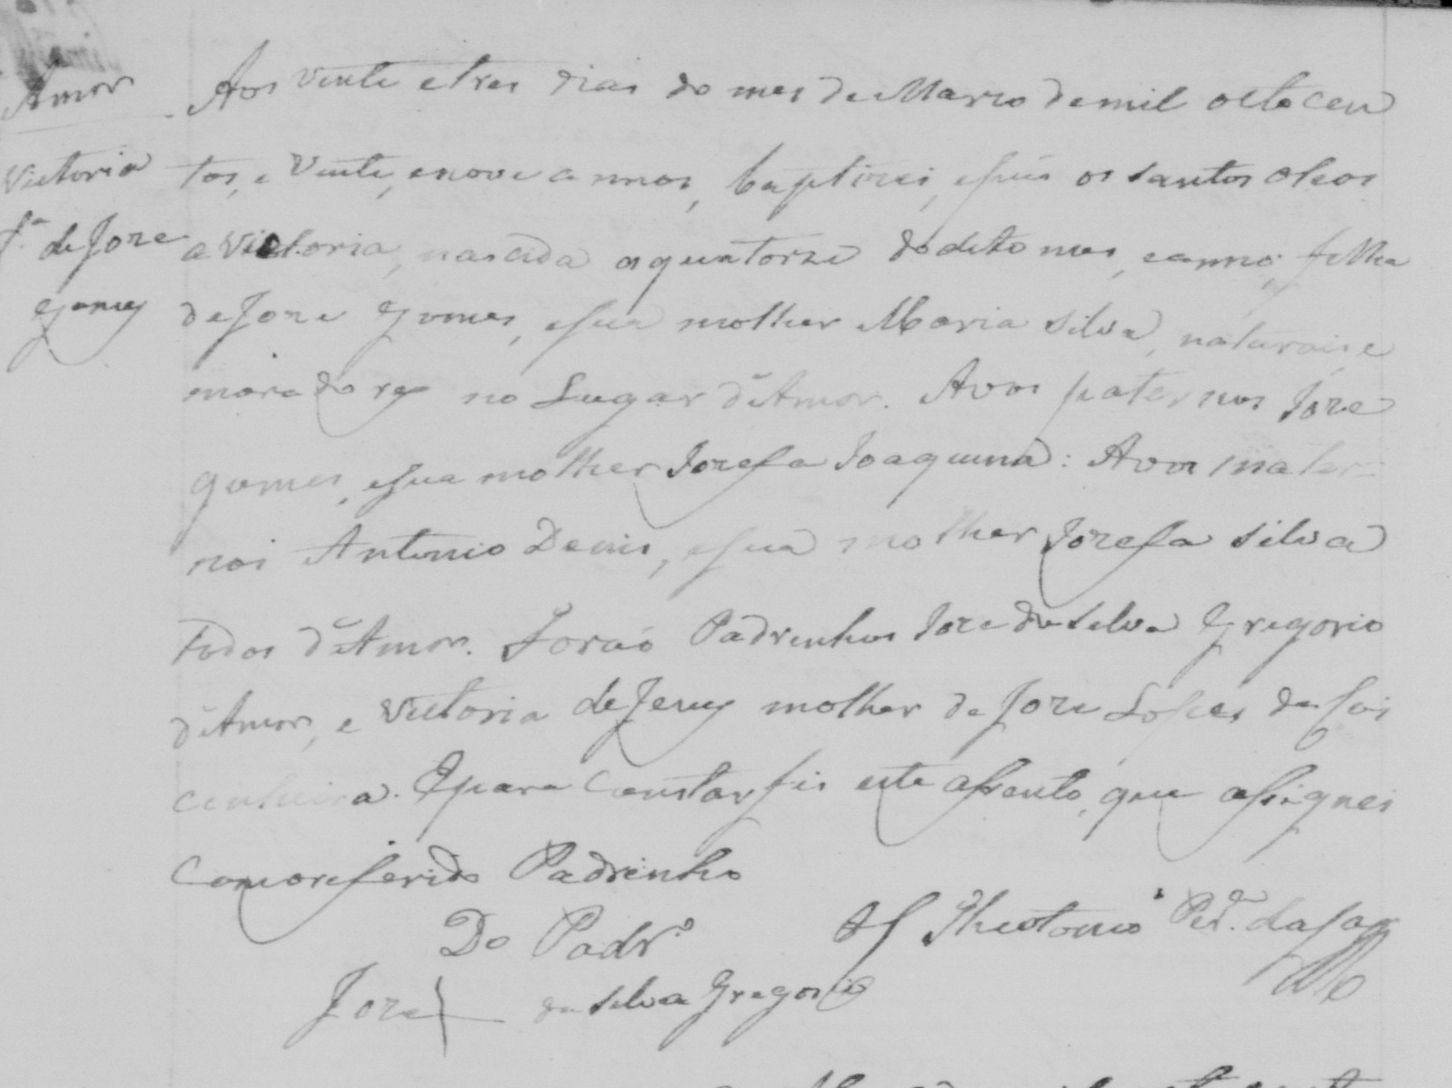 Amor
Victoria
f.ª de Joze
Gomes
Aos vinte e tres dias do mes de Marco de mil oito cen
tos, e vinte, e nove annos, baptizei, e puis os santos oleos
a Victoria, nascida aquatorze do dito mes, e anno; filha
de Joze Gomes, e sua molher Maria Silva, naturais, e
moradores no Lugar d'Amor. Avos paternos Joze
Gomes, e sua molher Jozefa Joaquina: Avos mater=
nos Antonio Denis, e sua molher Jozefa Silva
todos d'Amor. Forão Padrinhos Joze da Silva Gregorio
d'Amor, e Victoria de Jesus molher de Joze Lopes da
E para constar fis este assento, que assignei
com o referido Padrinho
Do Padr.º
Joze + da Silva Gregorio
Theotonio